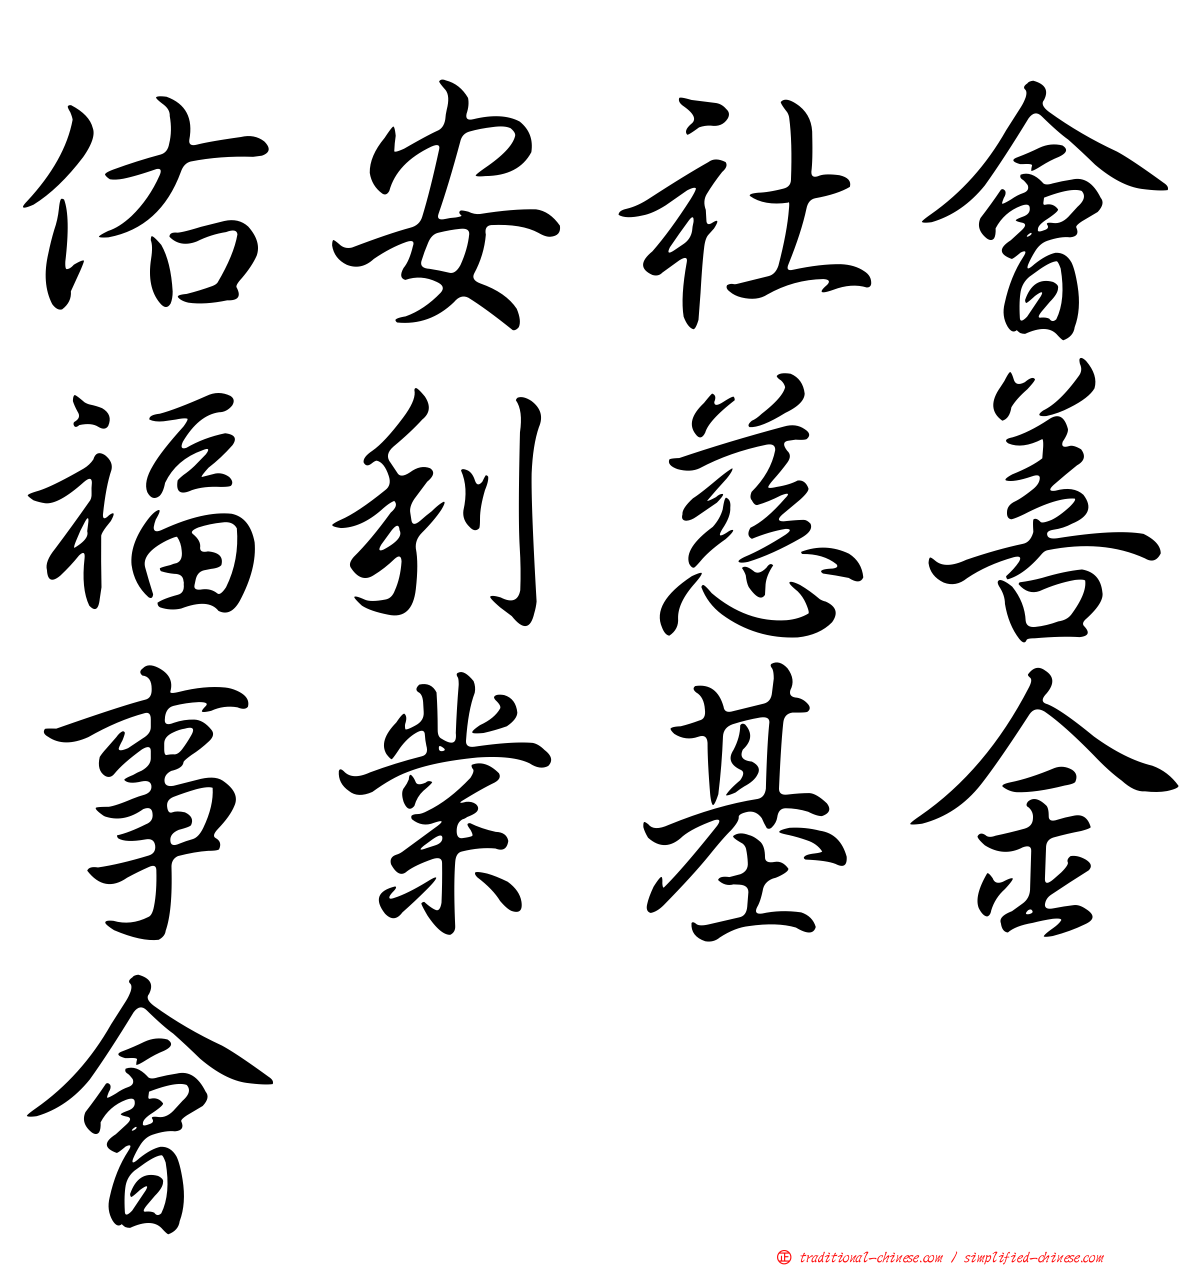 佑安社會
福利慈善
事業基金
會
正 traditional-chinese.com / simplified-chinese.com